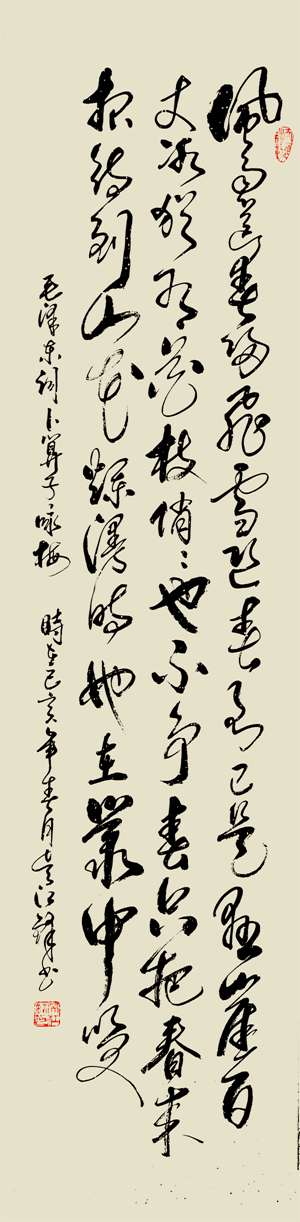 風雨送春歸飛雪迎春到已是懸崖百
丈冰猶有花枝俏々也不争春只把春来
报待到山花爛漫時她在叢中咲
毛澤東詞卜算子咏梅 時在己亥年春月江鋒书